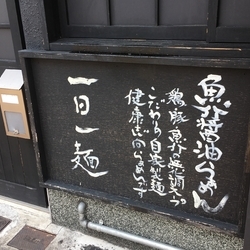 魚介醤油らーめん
鶏、豚、魚介、無化調スープ
こだわり自家製麺
健康志向らーめんです
一日一麺